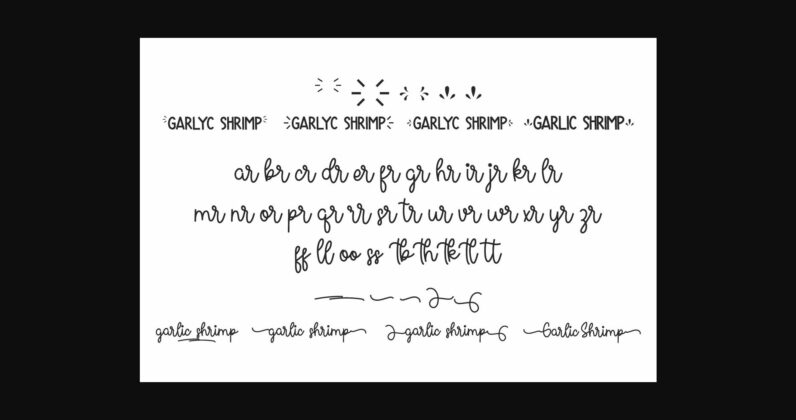 GARLYC SHRIMP GARLYC SHRIMP GARLYC SHRIMP GARLIC SHRIMP
ar br cr dr er fr gr hr ir jr kr lr
mr nr or pr qr rr sr tr ur vr wr xr yr zr
ff ll oo ss tb th tk tl tt
garlic shrimp garlic shrimp garlic shrimp Garlic Shrimp